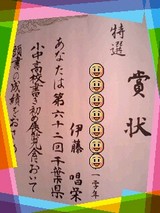 賞状
特選
一学年
伊藤 唱栄
あなたは第六十二回千葉県
小中高校書き初め展覧会において
頭書の成績を